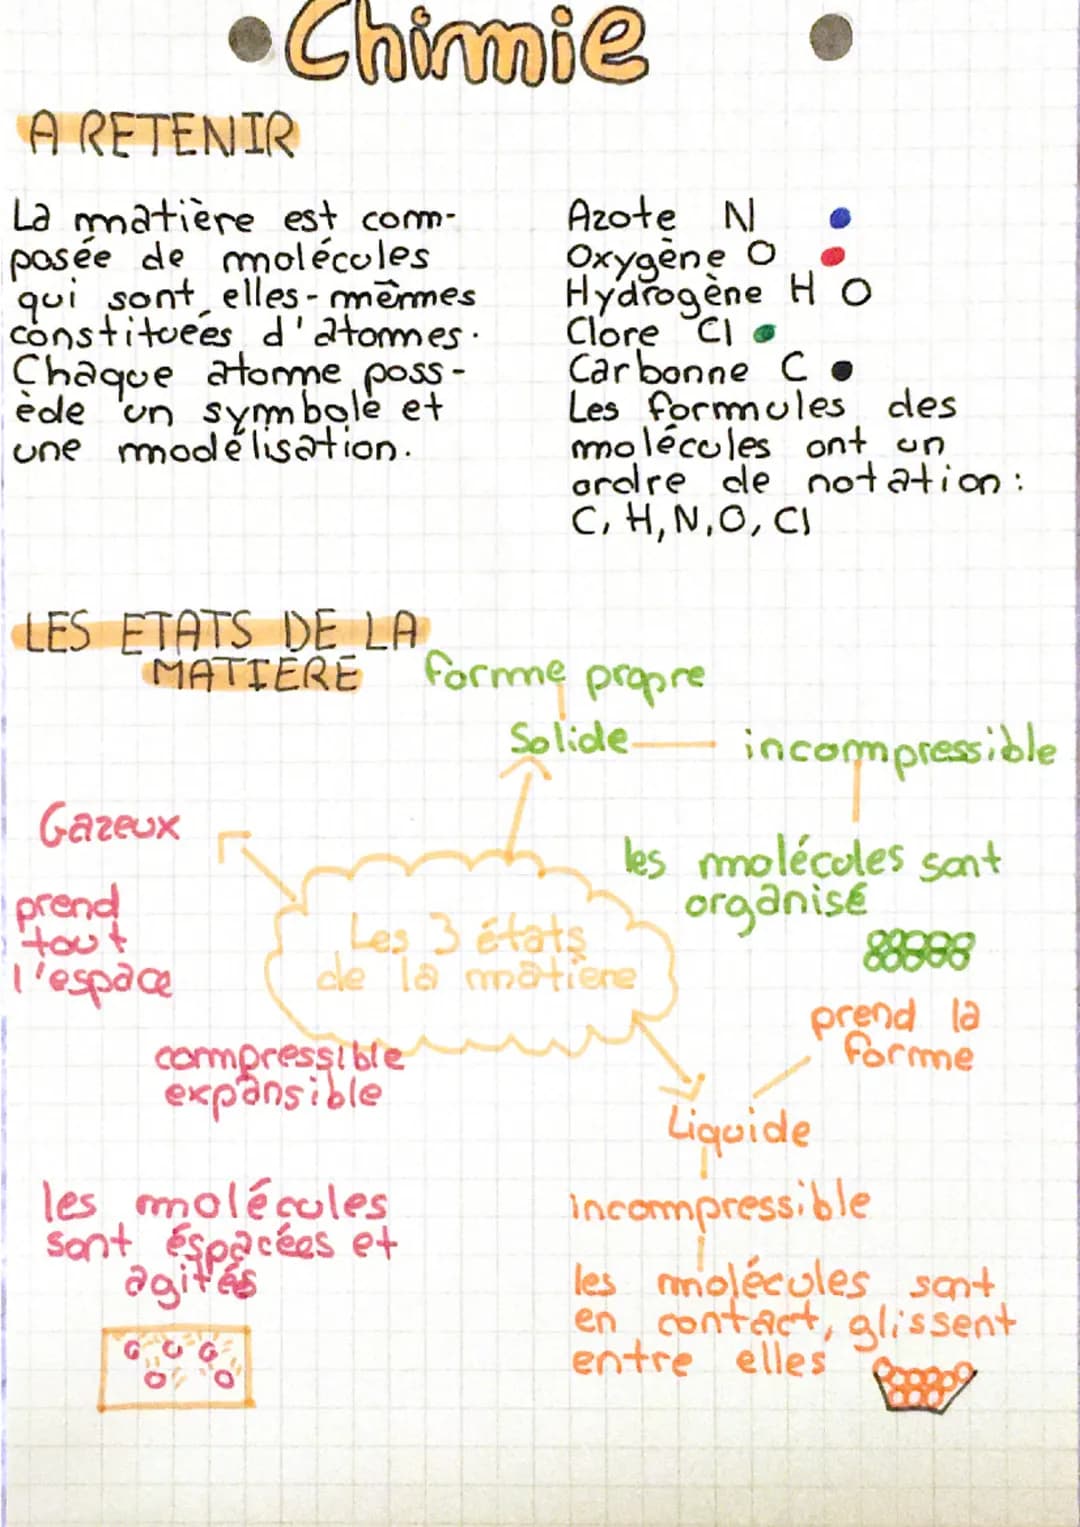 Chimie
A RETENIR
La matière est com-
posée de molécules
qui sont elles-mêmes
constituées d'atomes.
Chaque atome poss-
ède un symbole et
une modélisation.
Azote N
Oxygène O
Hydrogène H
Clore Cl
Carbonne C
Les formules des
molécules ont un
ordre de notation:
C, H, N, O, Cl
LES ETATS DE LA
MATIERE
forme propre
Solide
incompressible
les molécules sont
organisé
Gazeux
prend
tout
l'espace
compressible
expansible
les molécules
sont éspacées et
agités
Les 3 états
de la matière
prend la
forme
Liquide
incompressible
les molécules sont
en contact, glissent
entre elles